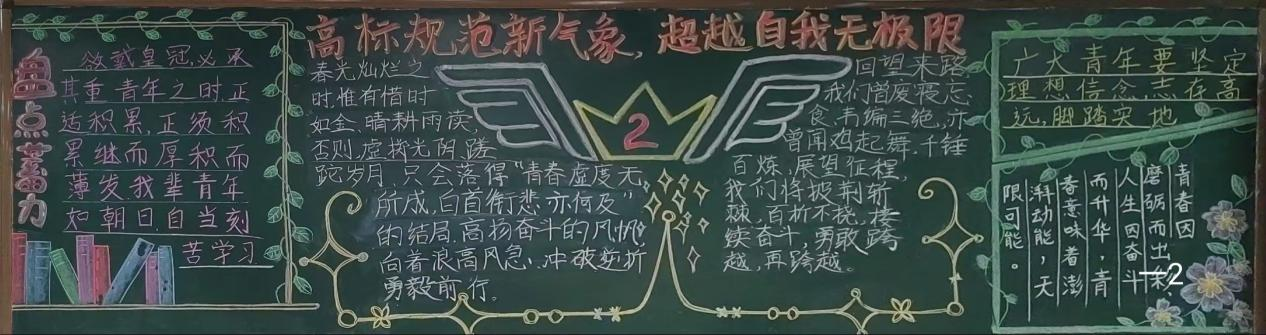 高标规范新气象,超越自我无极限
盘点蓄力
欲戴皇冠,必承
其重.青年之时,正
适积累,正须积
累继而厚积而
薄发,我辈青年
如朝日,自当刻
苦学习
春光灿烂之
时,惟有惜时
如金、晴耕雨读,
否则,虚掷光阴,蹉
跎岁月,只会落得“青春虚度无
所成,白首衔悲亦何及”
的结局.高扬奋斗的风帆,
向着浪高风急、冲破曲折
勇毅前行。
2
回望来路,
我们曾废寝忘
食,韦编三绝,亦
曾闻鸡起舞、千锤
百炼,展望征程,
我们将披荆斩
棘,百折不挠,接
续奋斗,勇敢跨
越,再跨越。
广大青年要坚定
理想信念,志存高
远,脚踏实地
青春因
磨砺而出彩
人生因奋斗
而升华,青
春意味着澎
湃动能,无
限可能。
2